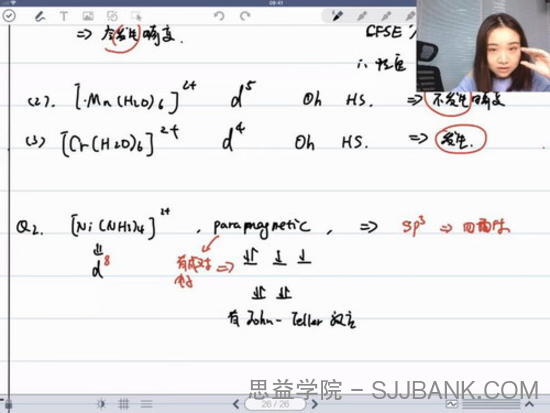 09:41
⇒ 不发生畸变.
CFSE
(2). [Mn(H2O)6]2+ d5 Oh HS. ⇒ 不发生畸变
(3) [Cr(H2O)6]2+ d4 Oh HS. ⇒ 发生.
Q2. [Ni(NH3)4]2+, paramagnetic, ⇒ sp3 ⇒ 四面体
⇓
d8
⇒ ⥮ ↓ ↓
⥮ ⥮
有 John-Teller 效应
26 / 26
思益学院 - SJJBANK.COM